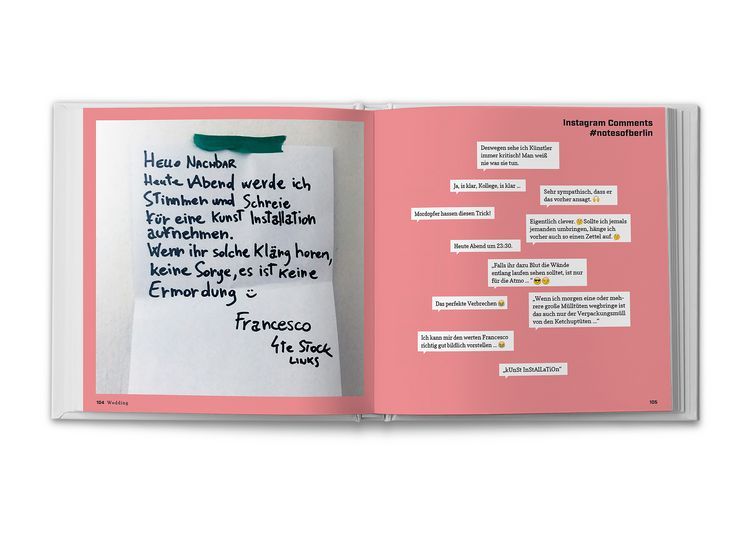 Hello Nachbar
Heute Abend werde ich
Stimmen und Schreie
für eine Kunst Installation
aufnehmen.
Wenn ihr solche Kläng horen,
keine Sorge, es ist keine
Ermordung ☺
Francesco
4te Stock
Links
104 Wedding
Instagram Comments
#notesofberlin
Deswegen sehe ich Künstler
immer kritisch! Man weiß
nie was sie tun.
Ja, is klar, Kollege, is klar ...
Sehr sympathisch, dass er
das vorher ansagt. 🙌
Mordopfer hassen diesen Trick!
Eigentlich clever. 🤔 Sollte ich jemals
jemanden umbringen, hänge ich
vorher auch so einen Zettel auf. 🤔
Heute Abend um 23:30.
„Falls ihr dazu Blut die Wände
entlang laufen sehen solltet, ist nur
für die Atmo ... “ 😎😏
Das perfekte Verbrechen 😂
„Wenn ich morgen eine oder meh-
rere große Mülltüten wegbringe ist
das auch nur der Verpackungsmüll
von den Ketchuptüten ...“
Ich kann mir den werten Francesco
richtig gut bildlich vorstellen ... 😂
„kUnSt InStAlLaTiOn“
105